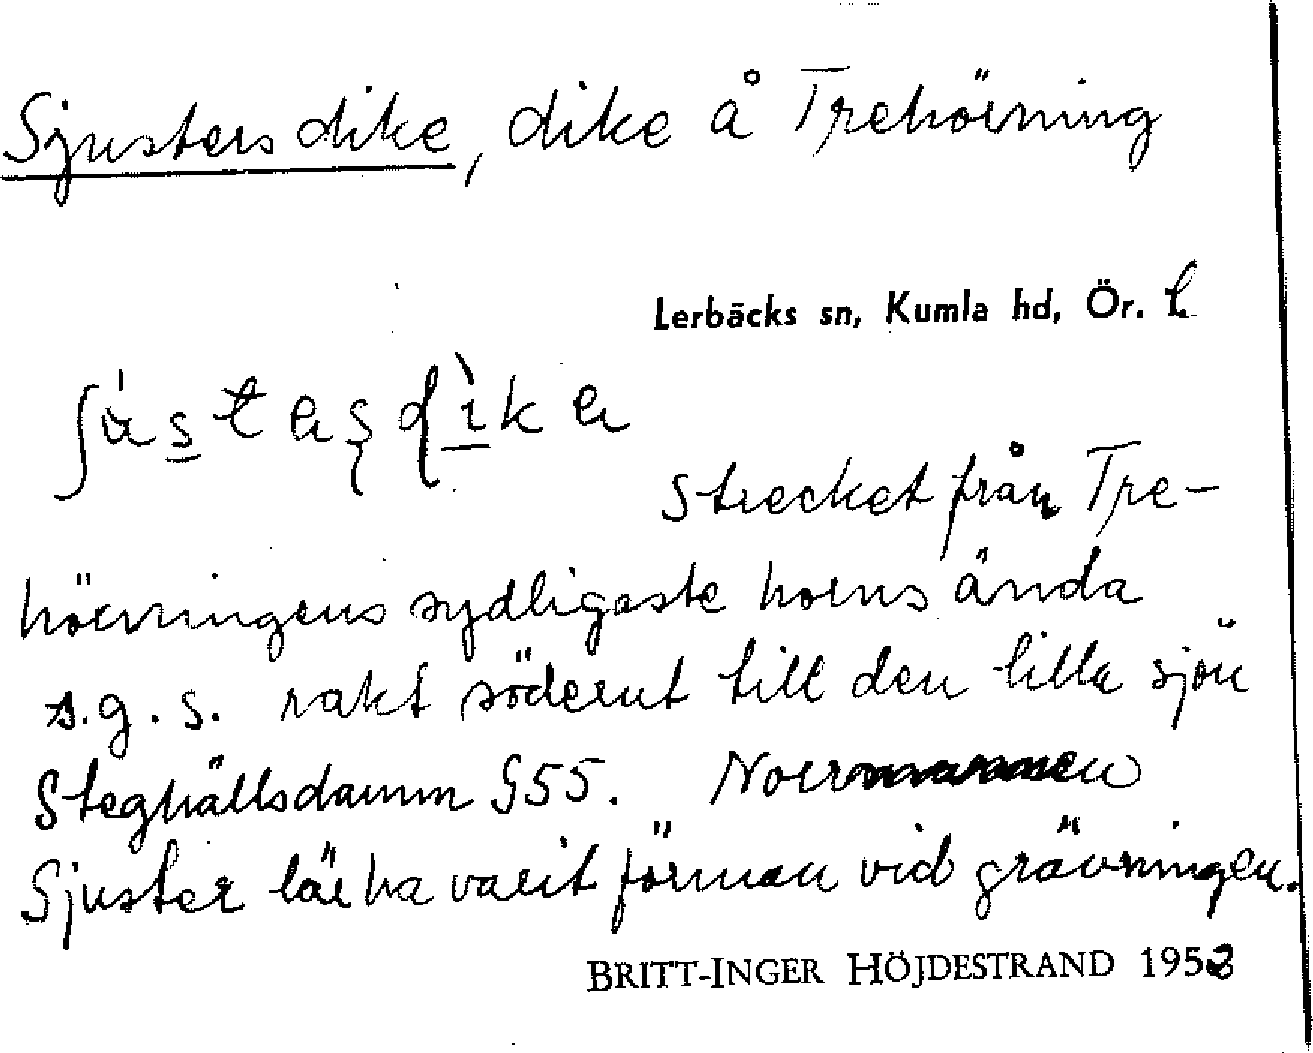 Sjusters dike, dike å Trehörning
Lerbäcks sn, Kumla hd, Ör. l.
sträcket från Tre-
hörningens sydligaste horns ända
s.g.s. rakt söderut till den lilla sjön
Steghällsdamm §55.
Sjuster lär ha varit förman vid grävningen.
BRITT-INGER HÖJDESTRAND 1953